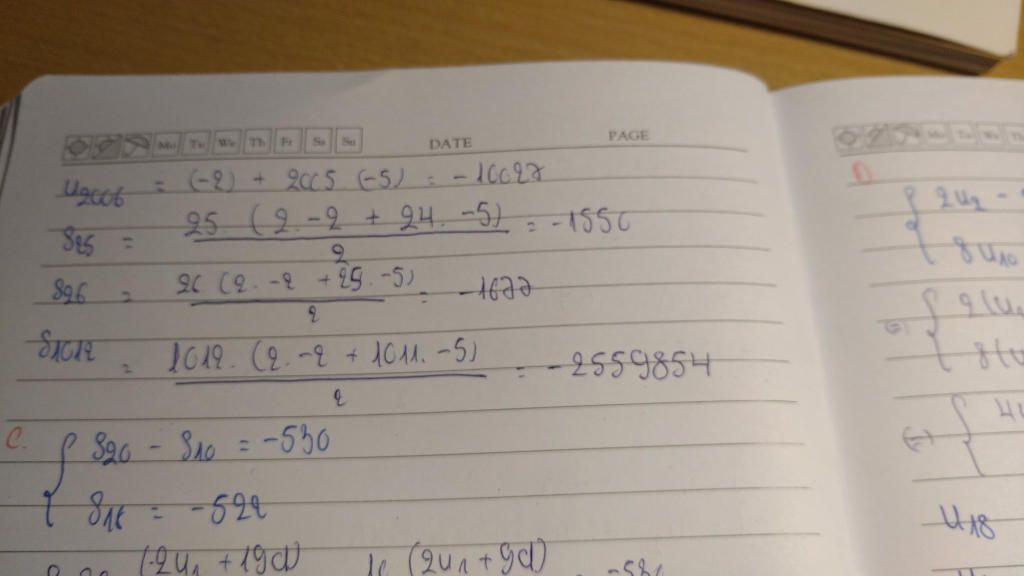 Mo Tu We Th Fr Sa Su DATE PAGE
u2006 = (-2) + 2005 . (-5) = -10027
S25 = 25. (2. -2 + 24. -5) / 2 = -1550
S26 = 26 (2. -2 + 25. -5) / 2 = -1677
S1012 = 1012. (2. -2 + 1011. -5) / 2 = -2559854
C. { S20 - S10 = -530
S18 = -522
(2u1 + 19d) (2u1 + 9d)
Mo Tu We Th
D
{ 2u2 -
8u10
{ 2(u1
8(u
(=) { 4u
u18